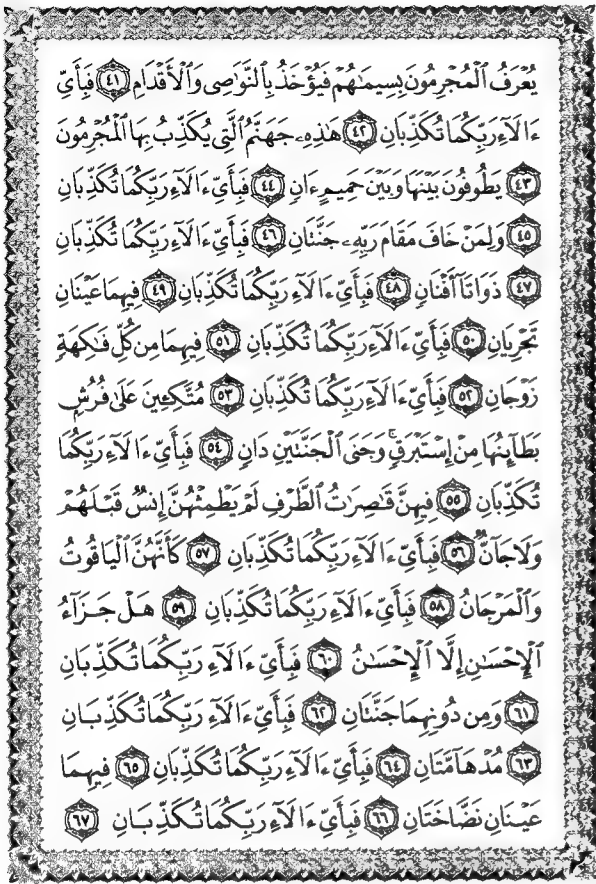 يُعْرَفُ ٱلْمُجْرِمُونَ بِسِيمَٰهُمْ فَيُؤْخَذُ بِٱلنَّوَٰصِى وَٱلْأَقْدَامِ ٤١ فَبِأَىِّ
ءَالَآءِ رَبِّكُمَا تُكَذِّبَانِ ٤٢ هَٰذِهِۦ جَهَنَّمُ ٱلَّتِى يُكَذِّبُ بِهَا ٱلْمُجْرِمُونَ
٤٣ يَطُوفُونَ بَيْنَهَا وَبَيْنَ حَمِيمٍ ءَانٍ ٤٤ فَبِأَىِّ ءَالَآءِ رَبِّكُمَا تُكَذِّبَانِ
٤٥ وَلِمَنْ خَافَ مَقَامَ رَبِّهِۦ جَنَّتَانِ ٤٦ فَبِأَىِّ ءَالَآءِ رَبِّكُمَا تُكَذِّبَانِ
٤٧ ذَوَاتَآ أَفْنَانٍ ٤٨ فَبِأَىِّ ءَالَآءِ رَبِّكُمَا تُكَذِّبَانِ ٤٩ فِيهِمَا عَيْنَانِ
تَجْرِيَانِ ٥٠ فَبِأَىِّ ءَالَآءِ رَبِّكُمَا تُكَذِّبَانِ ٥١ فِيهِمَا مِن كُلِّ فَٰكِهَةٍ
زَوْجَانِ ٥٢ فَبِأَىِّ ءَالَآءِ رَبِّكُمَا تُكَذِّبَانِ ٥٣ مُتَّكِـِٔينَ عَلَىٰ فُرُشٍۭ
بَطَآئِنُهَا مِنْ إِسْتَبْرَقٍ ۚ وَجَنَى ٱلْجَنَّتَيْنِ دَانٍ ٥٤ فَبِأَىِّ ءَالَآءِ رَبِّكُمَا
تُكَذِّبَانِ ٥٥ فِيهِنَّ قَٰصِرَٰتُ ٱلطَّرْفِ لَمْ يَطْمِثْهُنَّ إِنسٌ قَبْلَهُمْ
وَلَا جَآنٌّ ٥٦ فَبِأَىِّ ءَالَآءِ رَبِّكُمَا تُكَذِّبَانِ ٥٧ كَأَنَّهُنَّ ٱلْيَاقُوتُ
وَٱلْمَرْجَانُ ٥٨ فَبِأَىِّ ءَالَآءِ رَبِّكُمَا تُكَذِّبَانِ ٥٩ هَلْ جَزَآءُ
ٱلْإِحْسَٰنِ إِلَّا ٱلْإِحْسَٰنُ ٦٠ فَبِأَىِّ ءَالَآءِ رَبِّكُمَا تُكَذِّبَانِ
٦١ وَمِن دُونِهِمَا جَنَّتَانِ ٦٢ فَبِأَىِّ ءَالَآءِ رَبِّكُمَا تُكَذِّبَانِ
٦٣ مُدْهَآمَّتَانِ ٦٤ فَبِأَىِّ ءَالَآءِ رَبِّكُمَا تُكَذِّبَانِ ٦٥ فِيهِمَا
عَيْنَانِ نَضَّاخَتَانِ ٦٦ فَبِأَىِّ ءَالَآءِ رَبِّكُمَا تُكَذِّبَانِ ٦٧